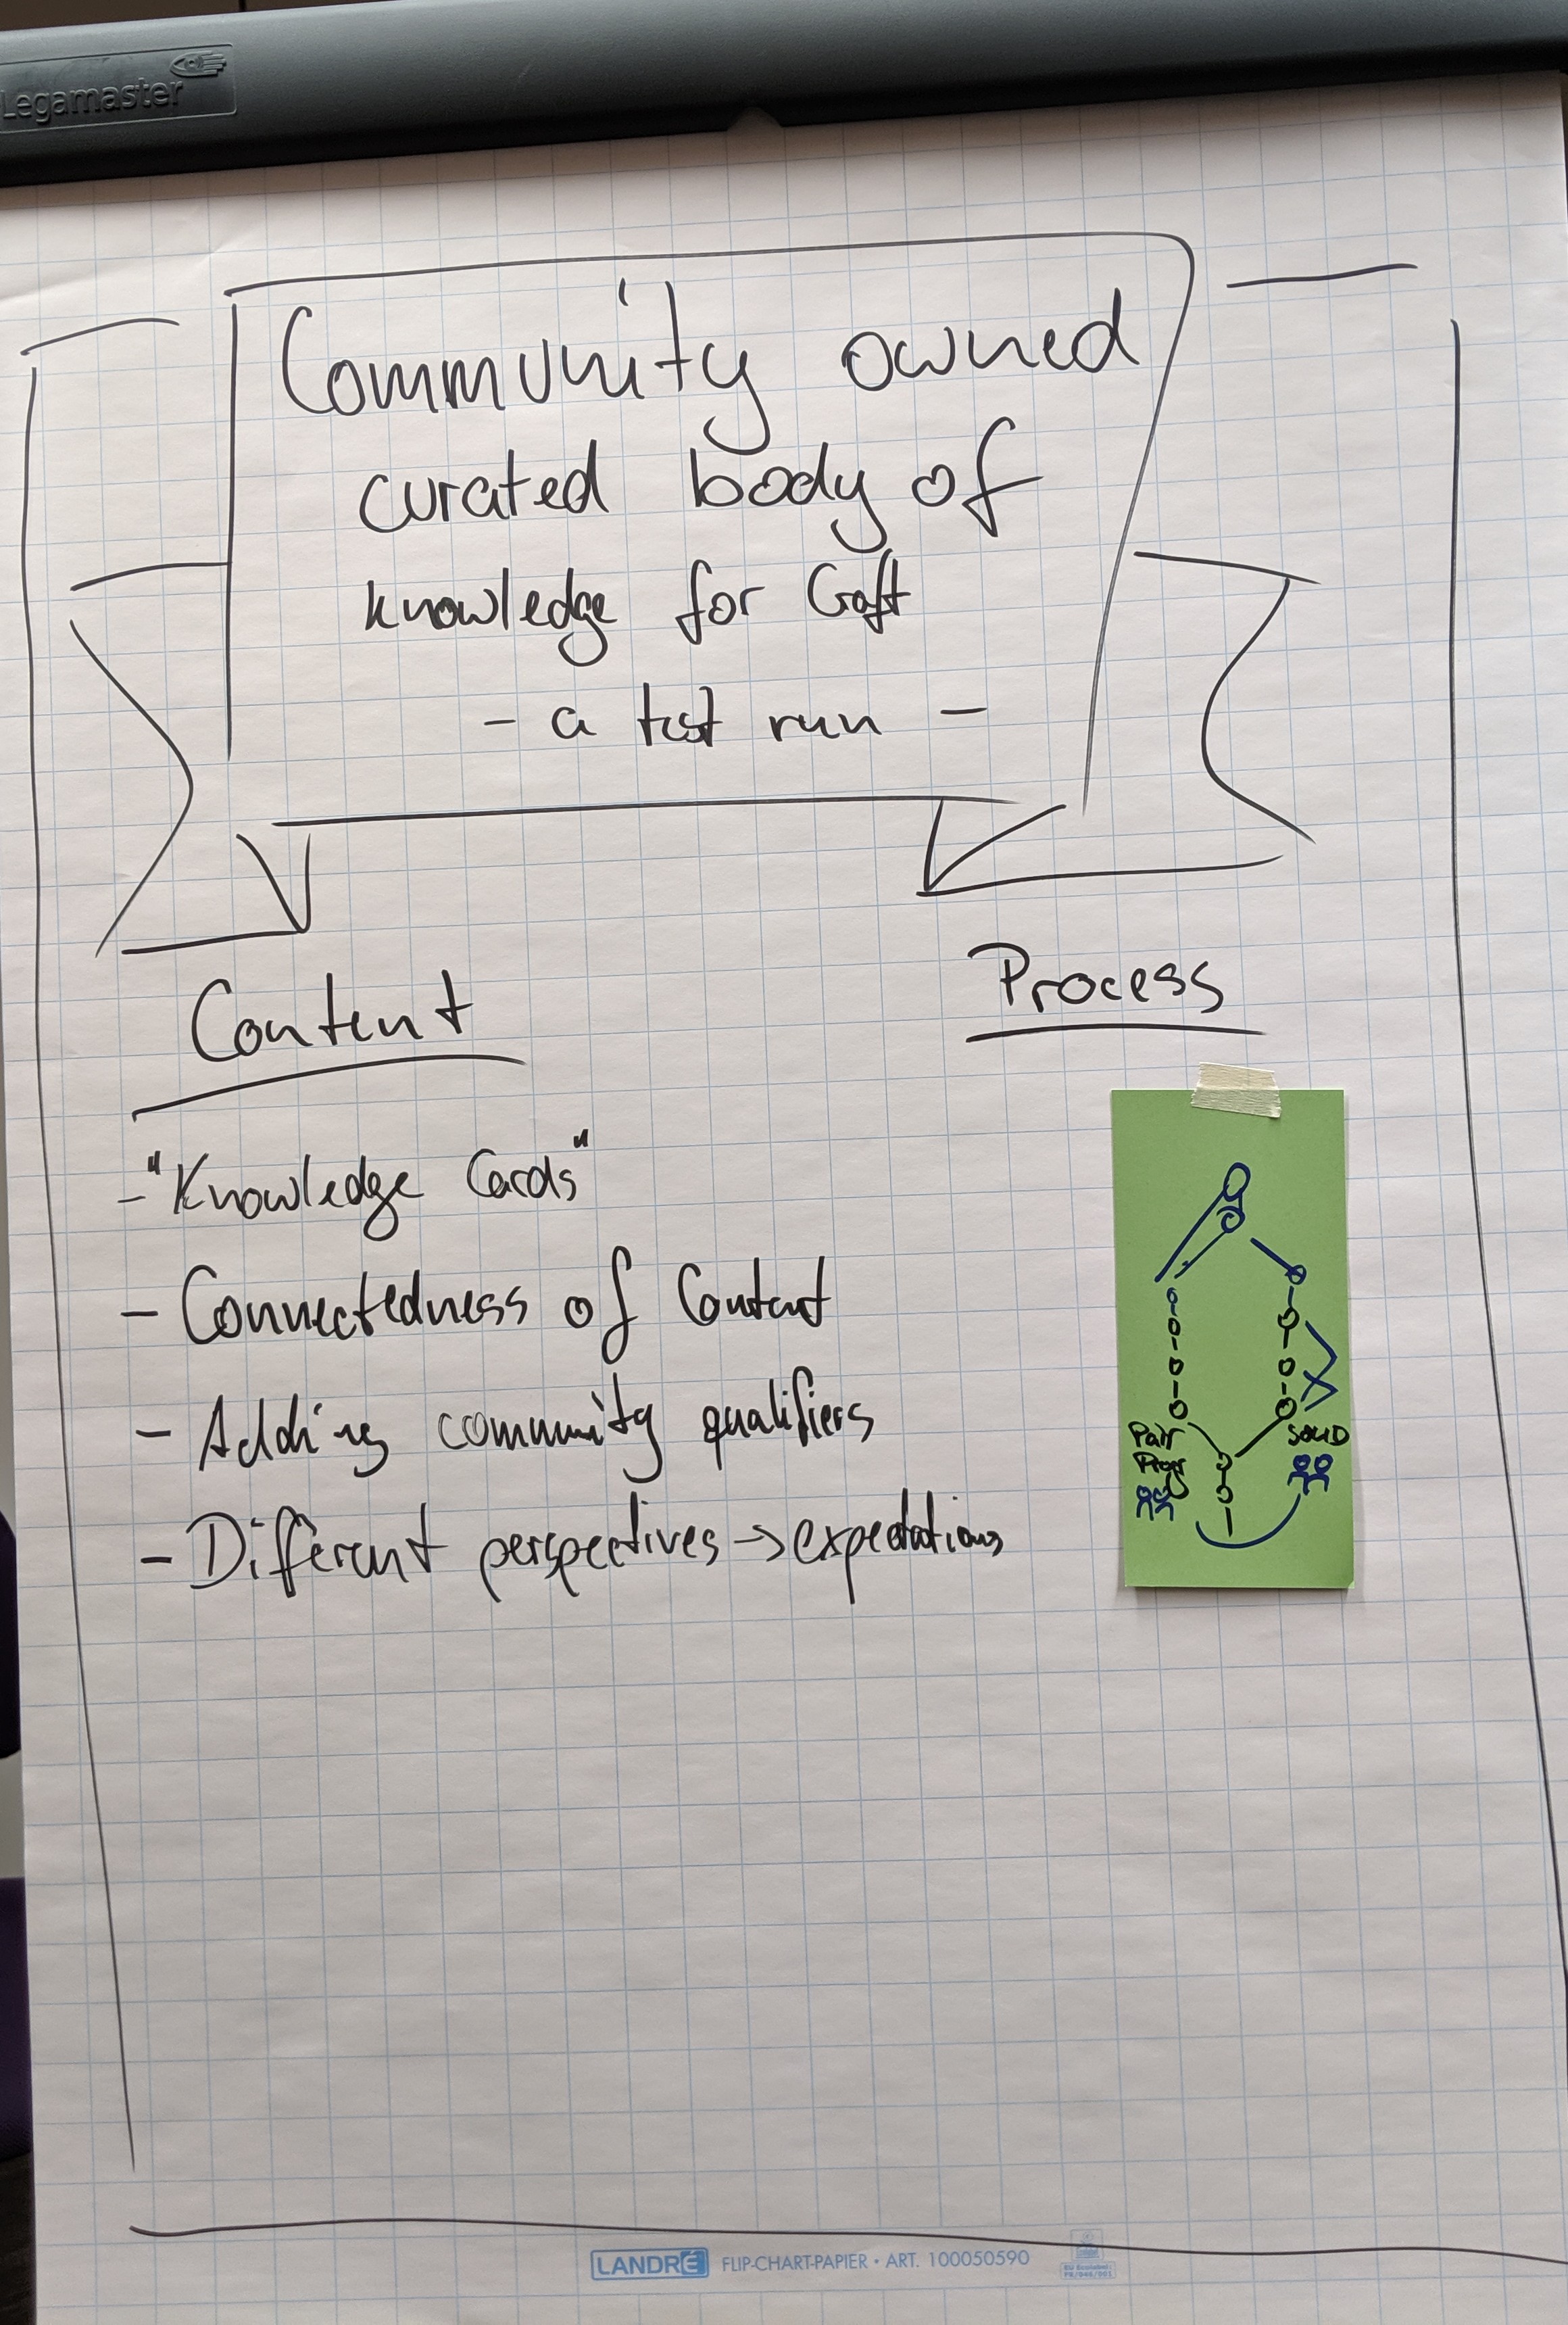 Legamaster
Community owned
curated body of
knowledge for Craft
- a test run -
Content
- "Knowledge Cards"
- Connectedness of Content
- Adding community qualifiers
- Different perspectives → expectations
Process
Pair
Prog
SOLID
LANDRÉ FLIP-CHART-PAPIER • ART. 100050590
EU Ecolabel: